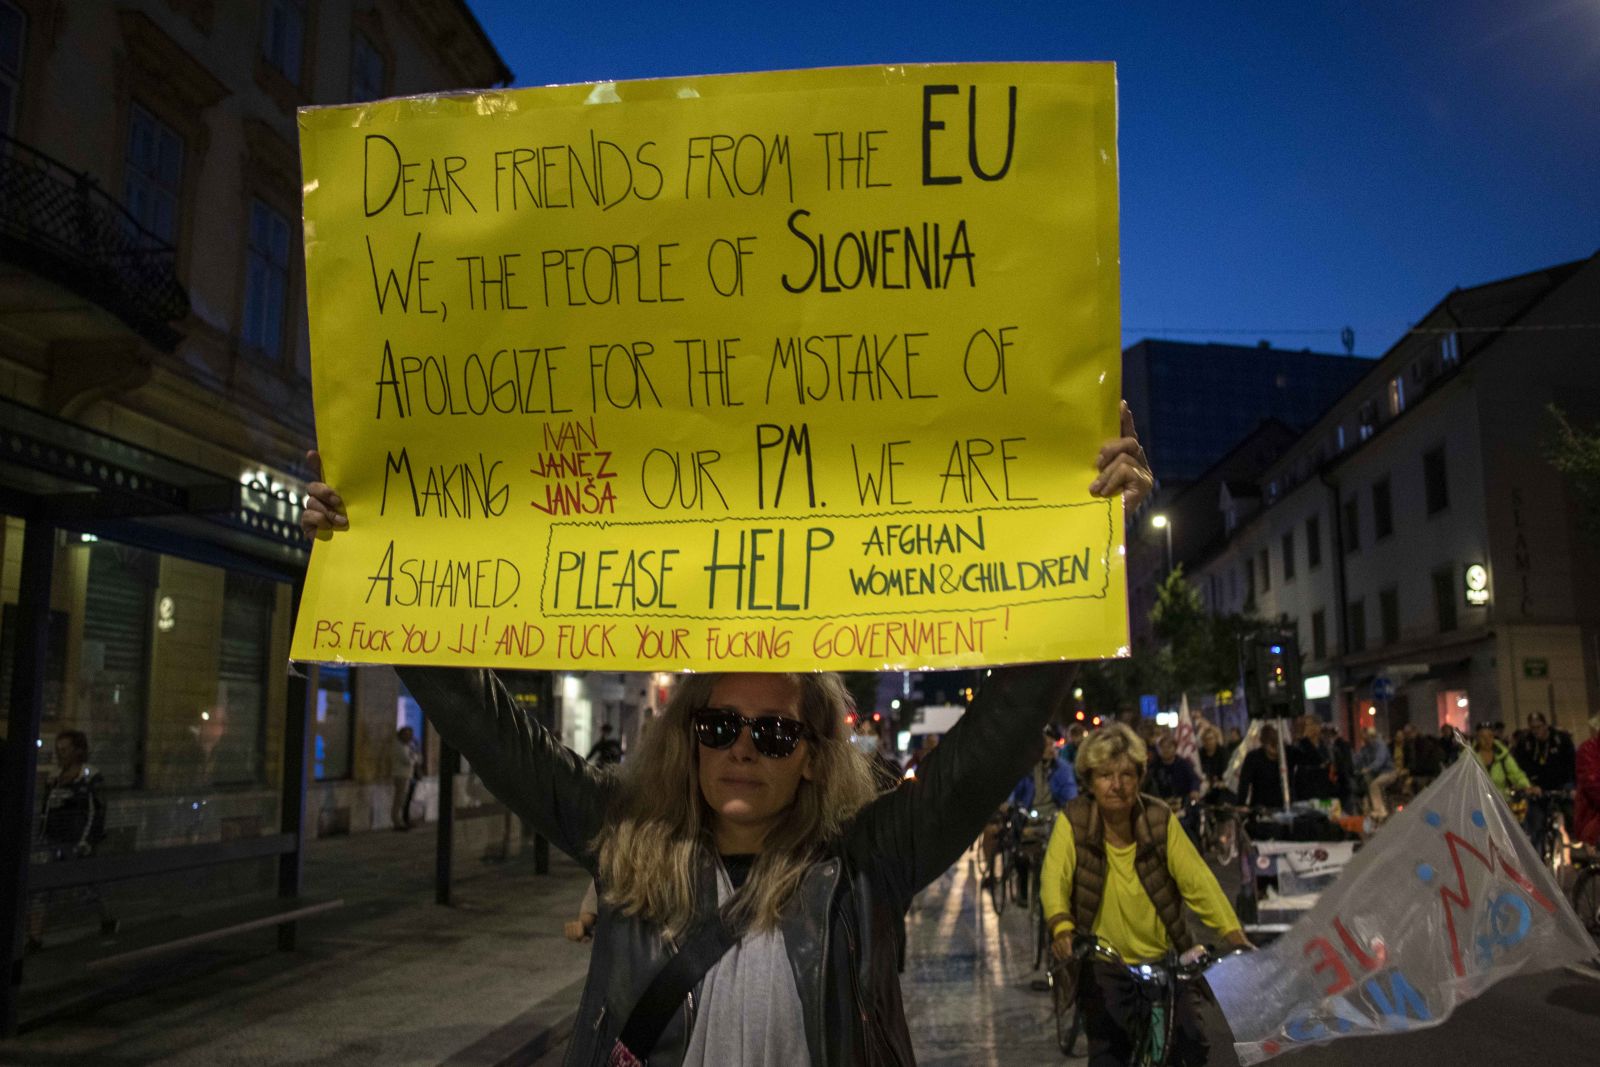 DEAR FRIENDS FROM THE EU
WE, THE PEOPLE OF SLOVENIA
APOLOGIZE FOR THE MISTAKE OF
MAKING IVAN JANEZ JANŠA OUR PM. WE ARE
ASHAMED. PLEASE HELP AFGHAN WOMEN & CHILDREN
P.S. FUCK YOU JJ! AND FUCK YOUR FUCKING GOVERNMENT!
JE